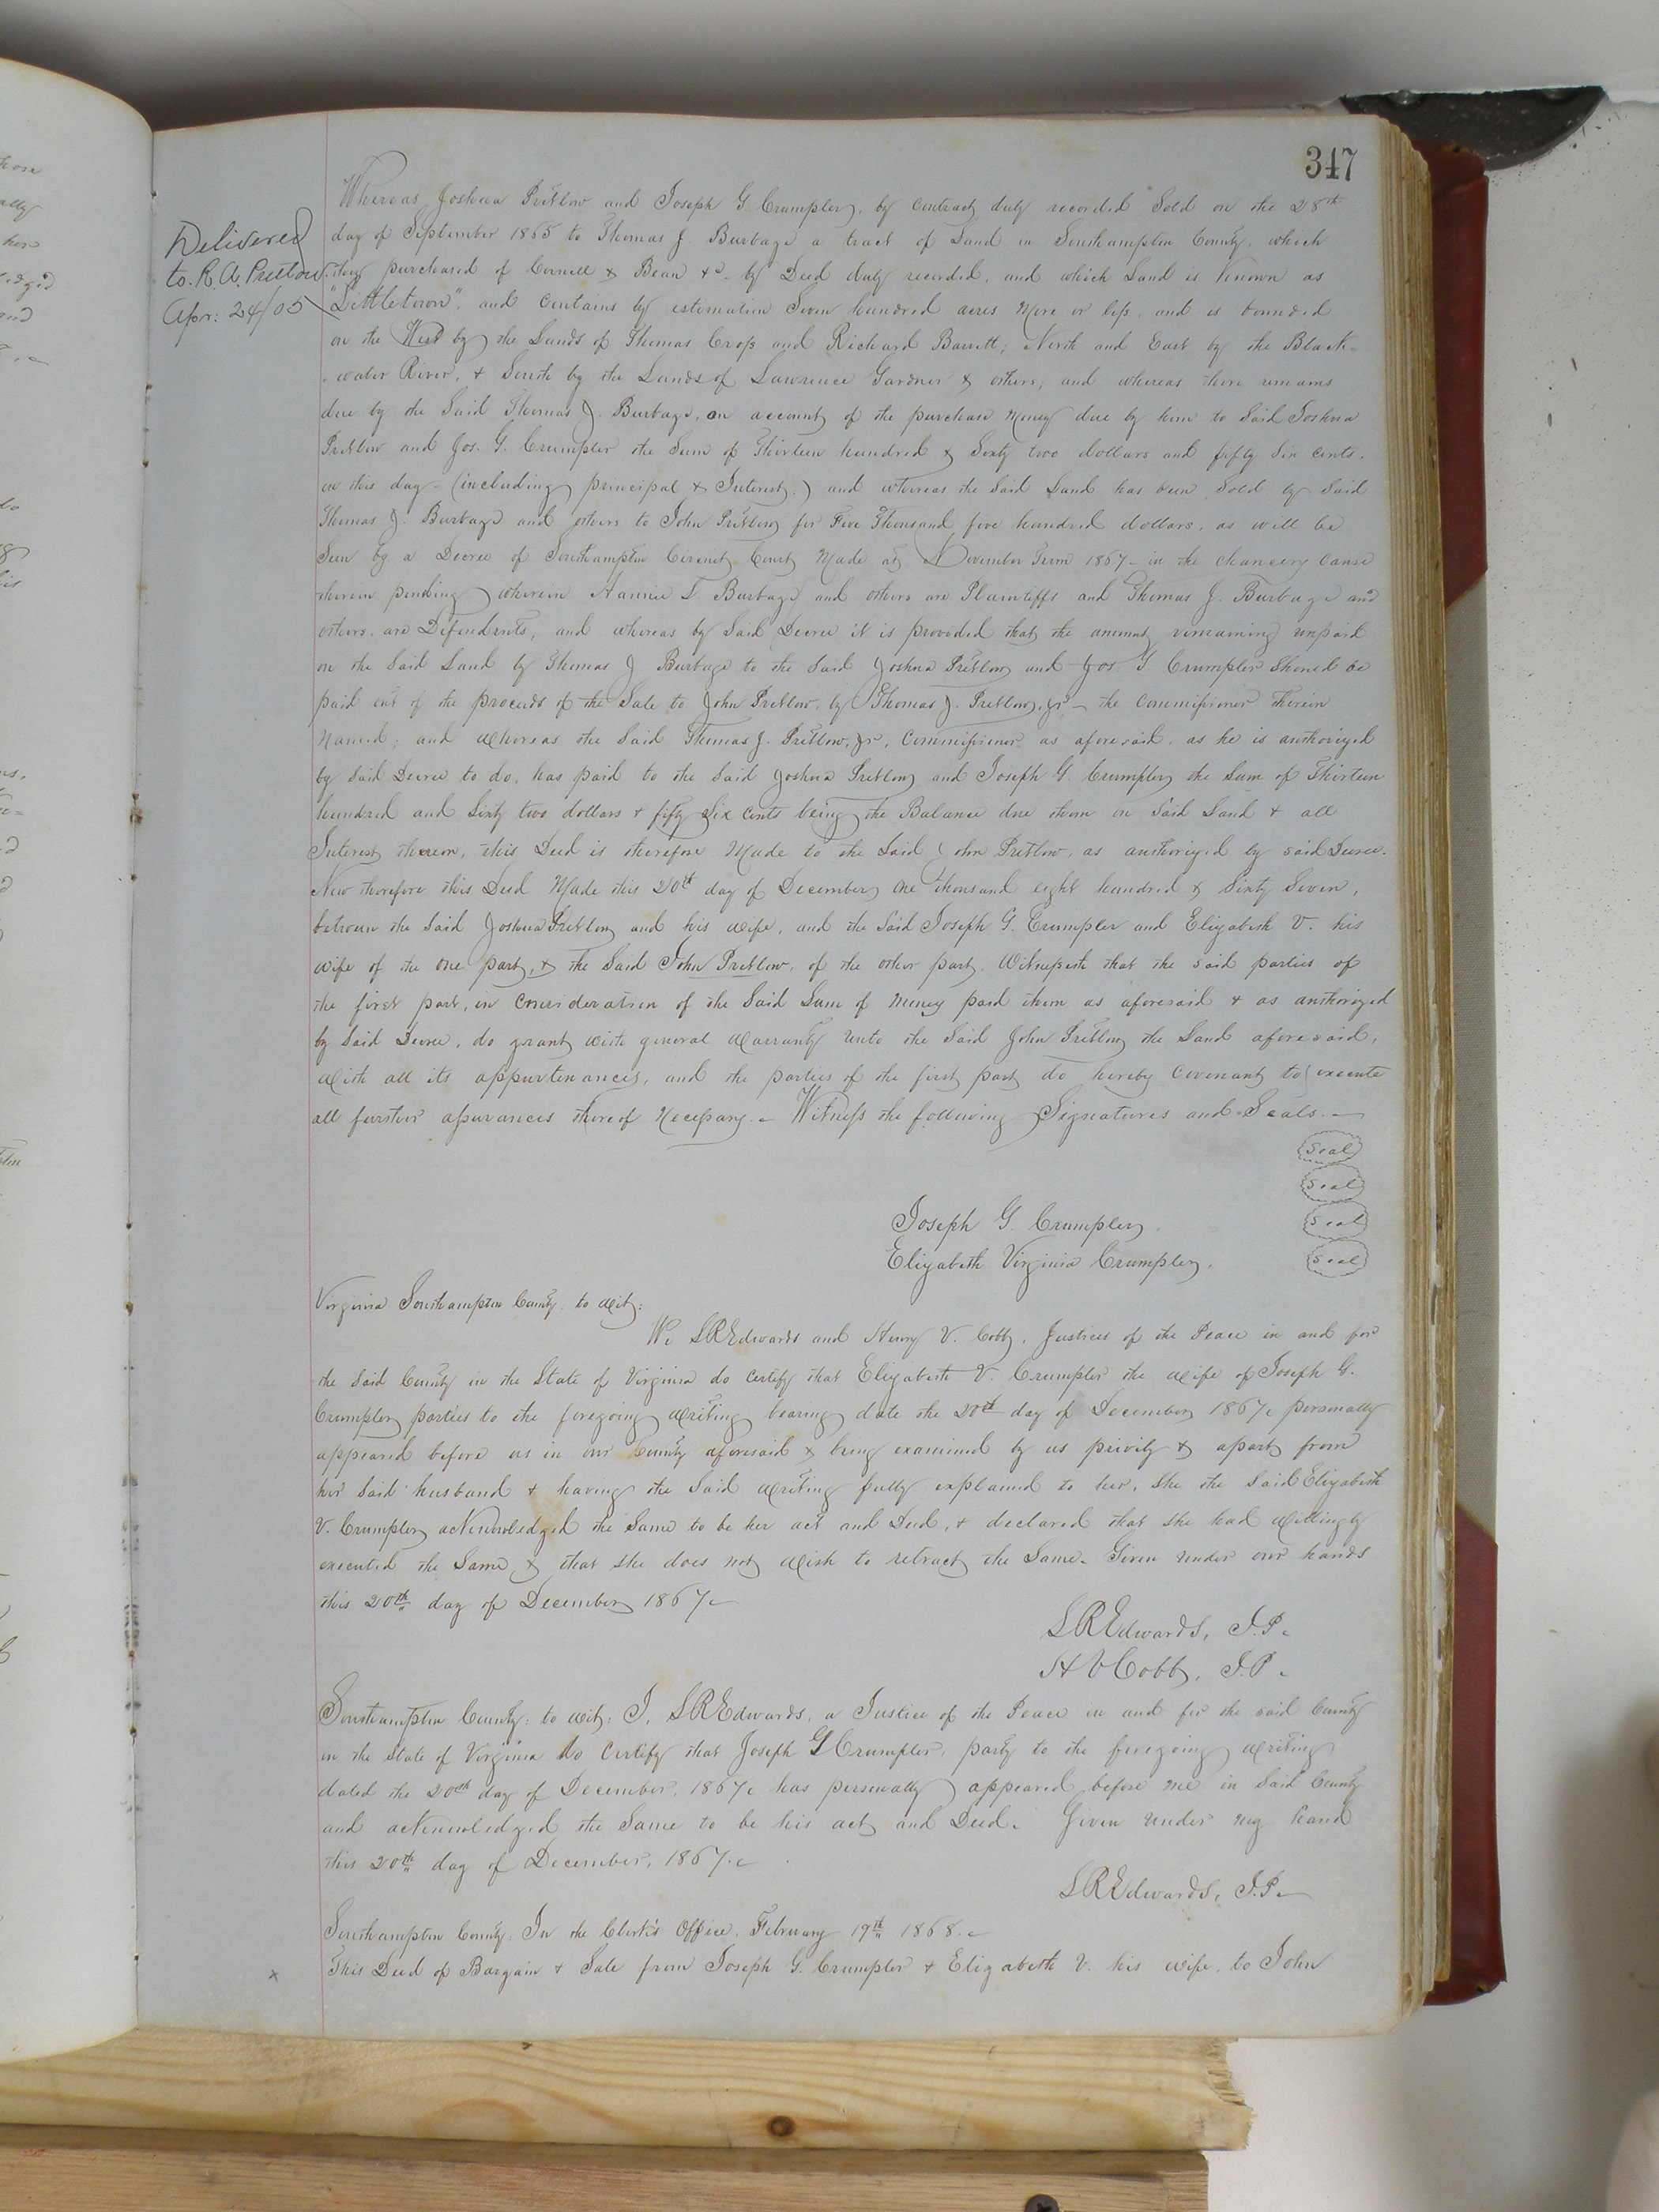 347
Delivered
to. R. A. Pretlow.
Apr: 24/05
Whereas Joshua Pretlow and Joseph G. Crumpler, by contract duly recorded Sold on the 28th
day of September 1865 to Thomas J. Burbage a tract of Land in Southampton County, which
they purchased of Cornell & Bean &c. by Deed duly recorded, and which Land is Known as
"Littletown", and Contains by estimation Seven hundred acres More or less, and is bounded
on the West by the Lands of Thomas Cross and Richard Barrett; North and East by the Black-
-water River, & South by the Lands of Lawrence Gardner & others; and whereas there remains
due by the Said Thomas J. Burbage, on account of the purchase Money due by him to Said Joshua
Pretlow and Jos. G. Crumpler the Sum of Thirteen hundred & Sixty two dollars and fifty Six cents,
on this day - (including principal & Interest.) and whereas the Said Land has been Sold by Said
Thomas J. Burbage and others to John Pretlow for Five Thousand five hundred dollars, as will be
Seen by a Decree of Southampton Circuit Court Made at November Term 1867 - in the chancery Cause
therein pending wherein Nannie T. Burbage and others are Plaintiffs and Thomas J. Burbage and
others, are Defendants; and whereas by Said Decree it is provided that the amount remaining unpaid
on the Said Land by Thomas J Burbage to the Said Joshua Pretlow and Jos. G. Crumpler Should be
paid out of the proceeds of the Sale to John Pretlow, by Thomas J. Pretlow, Jr - the Commissioner therein
Named; and Whereas the Said Thomas J. Pretlow, Jr, Commissioner as aforesaid, as he is authorized
by Said Decree to do, has paid to the Said Joshua Pretlow and Joseph G. Crumpler the Sum of Thirteen
hundred and Sixty two dollars & fifty Six Cents being the Balance due them on Said Land & all
Interest thereon, this Deed is therefore Made to the Said John Pretlow, as authorized by said Decree.
Now therefore this Deed Made this 20th day of December, One thousand eight hundred & Sixty Seven,
between the Said Joshua Pretlow and his wife, and the Said Joseph G. Crumpler and Elizabeth V. his
Wife of the one part, & the Said John Pretlow, of the other part, Witnesseth that the said parties of
the first part, in Consideration of the Said Sum of Money paid them as aforesaid & as authorized
by Said Decree, do grant with general Warranty Unto the Said John Pretlow the Land aforesaid,
With all its appurtenances, and the parties of the first part do hereby Covenant to execute
all further assurances thereof Necessary. - Witness the following Signatures and Seals. -
Seal
Seal
Joseph G. Crumpler. Seal
Elizabeth Virginia Crumpler. Seal
Virginia Southampton County. to Wit:
We LREdwards and Henry V. Cobb, Justices of the Peace in and for
the Said County in the State of Virginia do Certify that Elizabeth V. Crumpler the Wife of Joseph G.
Crumpler, parties to the foregoing Writing bearing date the 20th day of December 1867, personally
appeared before us in our County aforesaid & being examined by us privily & apart from
her Said husband & having the Said Writing fully explained to her, She the Said Elizabeth
V. Crumpler acknowledged the Same to be her act and Deed, & declared that She had Willingly
executed the Same, & that She does not Wish to retract the Same. Given Under our hands
this 20th day of December 1867. -
LREdwards, J.P.
H V Cobb, J.P.
Southampton County: to Wit: I, LREdwards, a Justice of the Peace in and for the said County
in the State of Virginia do Certify that Joseph G Crumpler, party to the foregoing Writing
dated the 20th day of December, 1867, has personally appeared before me in Said County
and acknowledged the Same to be his act and Deed. Given Under my hand
this 20th day of December, 1867. -
LREdwards, J.P. -
Southampton County: In the Clerk's Office, February 19th 1868. -
x This Deed of Bargain & Sale from Joseph G. Crumpler & Elizabeth V. his wife, to John